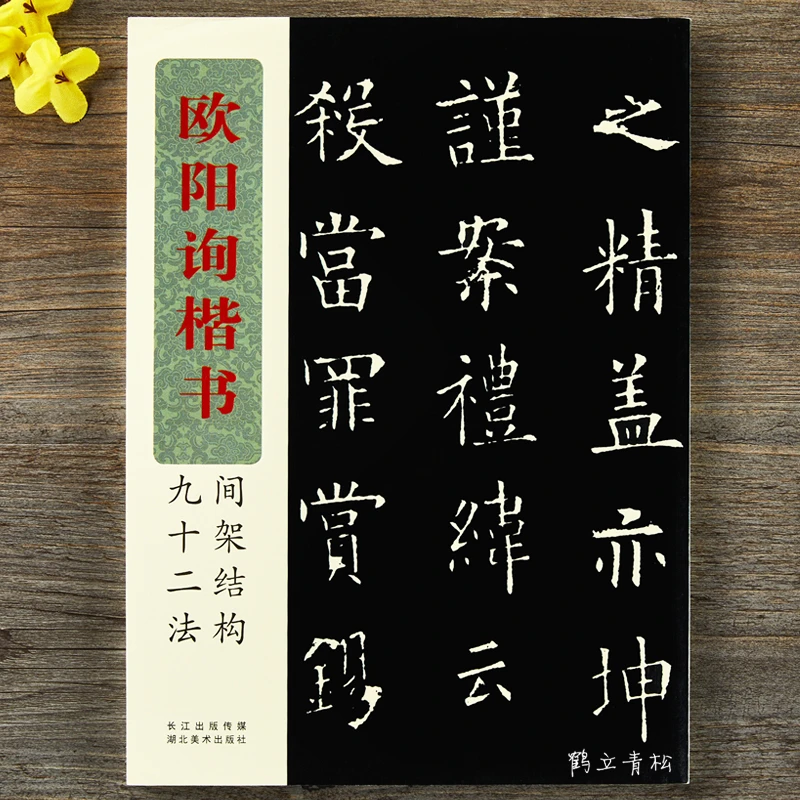 欧阳询楷书
间架结构
九十二法
长江出版传媒
湖北美术出版社
之精盖亦坤
谨案禮緯云
殺當罪賞錫
鹤立青松